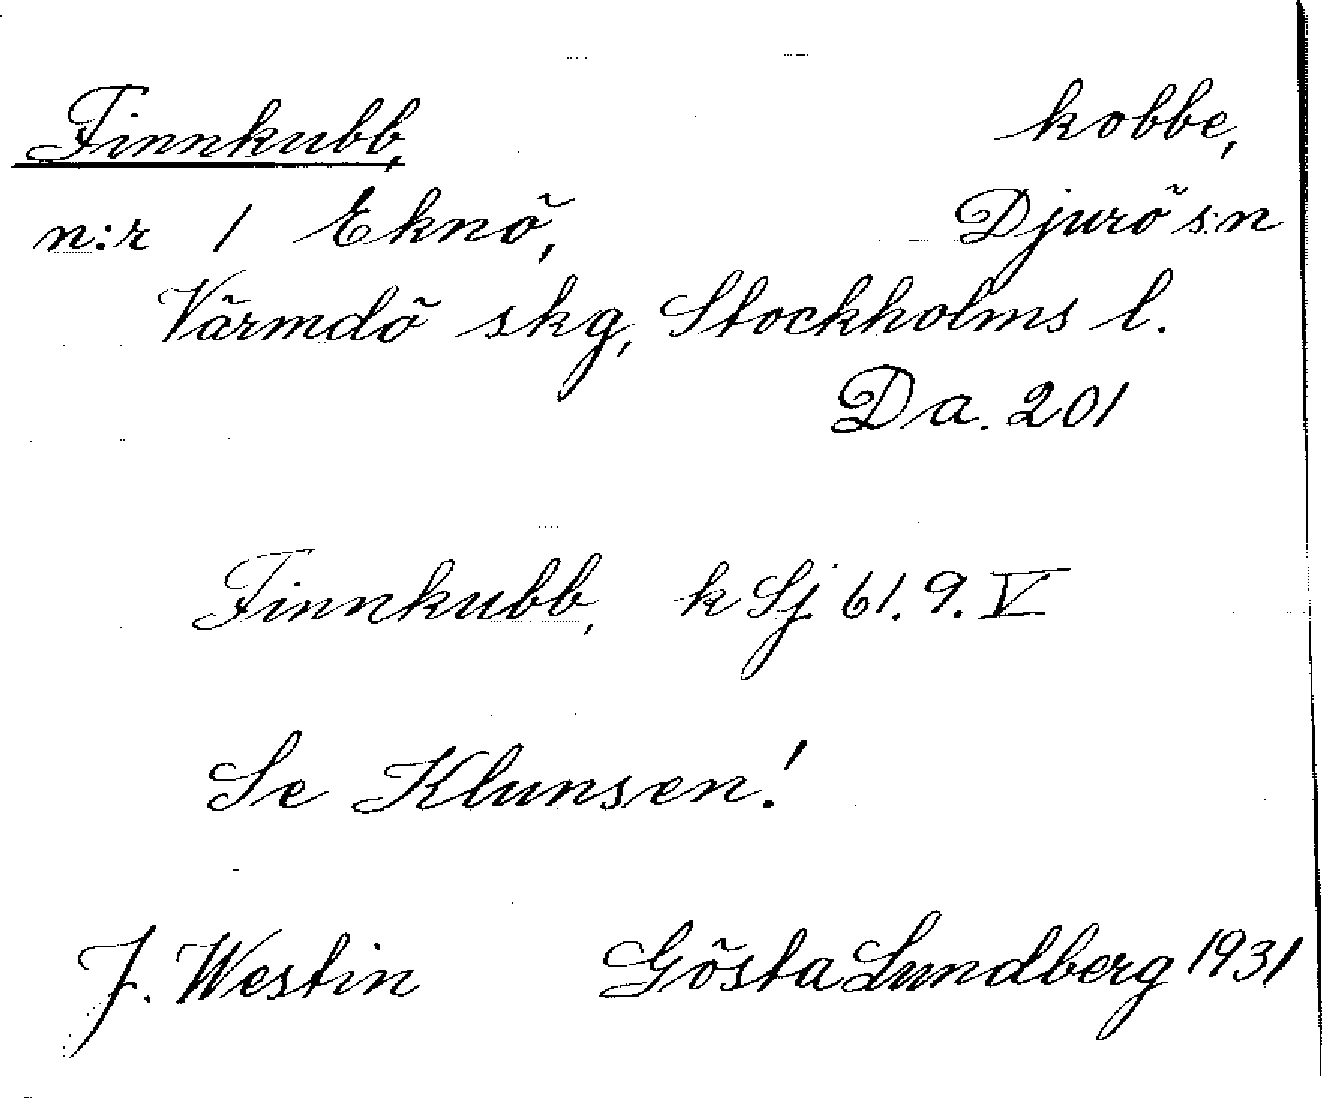 Finnkubb, kobbe,
n:r 1 Eknö, Djurö sn
Värmdö skg, Stockholms l.
Da. 201
Finnkubb, k Sj 61. 9. V
Se Klunsen!
J. Westin Gösta Lundberg 1931